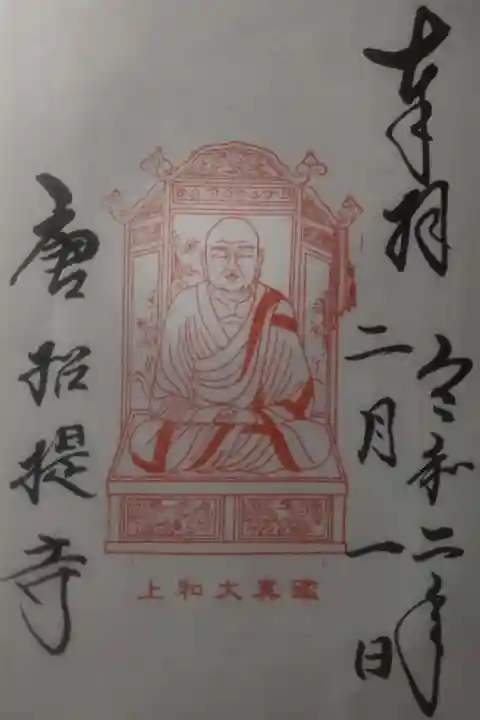 奉拝
令和二年
二月一日
上和大真鑑
唐招提寺